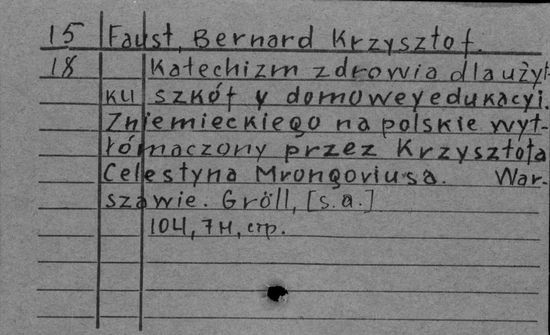 15 Faust, Bernard Krzysztof.
18 Katechizm zdrowia dla użyt-
ku szkół y domowey edukacyi.
Z niemieckiego na polskie wyt-
łómaczony przez Krzysztofa
Celestyna Mrongoviusa. War-
szawie. Gröll, [s.a.]
104, 7 н, стр.